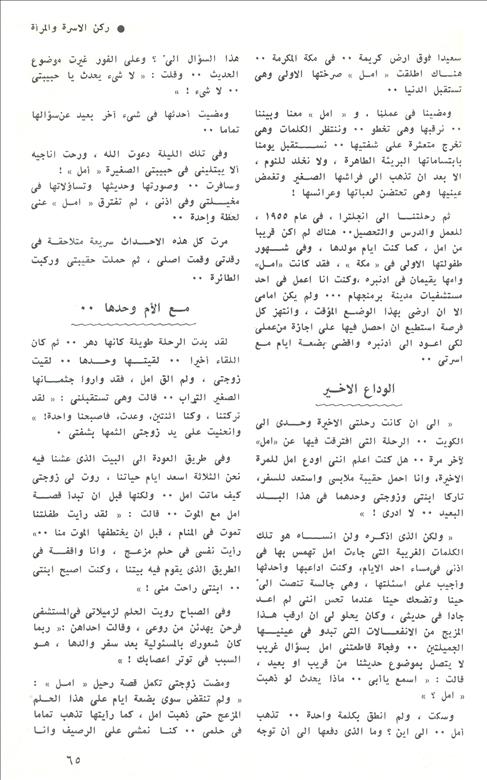 ● ركن الاسرة والمرأة
سعيدا فوق ارض كريمة ٠٠ فى مكة المكرمة ٠٠
هناك اطلقت « امل » صرختها الاولى وهى
تستقبل الدنيا ٠٠
ومضينا فى عملنا ٠ و « امل » معنا وبيننا
٠٠ نرقبها وهى تخطو ٠٠ وننتظر الكلمات وهى
تخرج متعثرة على شفتيها ٠٠ نستقبل يومنا
بابتساماتها البريئة الطاهرة ، ولا نخلد للنوم ،
الا بعد ان تذهب الى فراشها الصغير وتغمض
عينيها وهى تحتضن لعباتها وعرائسها !
ثم رحلتنا الى انجلترا ، فى عام ١٩٥٥ ،
للعمل والدرس والتحصيل٠٠ هناك لم اكن قريبا
من امل ، كما كنت ايام مولدها ، وفى شهور
طفولتها الاولى فى « مكة » ، فقد كانت «امل»
وامها يقيمان فى ادنبره ،وكنت انا اعمل فى احد
مستشفيات مدينة برمنجهام ٠٠٠ ولم يكن امامى
الا ان ارضى بهذا الوضع المؤقت ، وانتهز كل
فرصة استطيع ان احصل فيها على اجازة من عملى
لكى اعود الى أدنبره واقضى بضعة ايام مع
اسرتى ٠٠
الوداع الاخير
« الى ان كانت رحلتى الاخيرة وحدى الى
الكويت ٠٠ الرحلة التى افترقت فيها عن «امل»
لآخر مرة ٠٠ هل كنت اعلم اننى اودع امل للمرة
الاخيرة، وانا احمل حقيبة ملابسى واستعد للسفر،
تاركا ابنتى وزوجتى وحدهما فى هذا البلد
البعيد ٠٠ لا ادرى ! »
« ولكن الذى اذكره ولن انساه هو تلك
الكلمات الغريبة التى جاءت امل تهمس بها فى
أذنى فىمساء احد الايام، وكنت اداعبها وأحدثها
وأجيب على اسئلتها ، وهى جالسة تنصت الى ّ
حينا وتضعك حينا عندما تحس اننى لم اعد
جادا فى حديثى ، وكان يحلو لى ان ارقب هذا
المزيج من الانفعالات التى تبدو فى عينيها
الجميلتين ٠٠ وفجأة قاطعتنى امل بسؤال غريب
لا يتصل بموضوع حديثنا من قريب او بعيد ،
قالت : « اسمع ياأبى ٠٠ ماذا يحدث لو ذهبت
« امل ؟ »
وسكت ، ولم انطق بكلمة واحدة ٠٠ تذهب
أمل ٠٠ الى اين ؟ وما الذى دفعها الى أن توجه
هذا السؤال الى ّ ؟ وعلى الفور غيرت موضوع
الحديث ٠٠ وقلت : « لا شىء يحدث يا حبيبتى
٠٠ لا شىء ! »
ومضيت أحدثها فى شىء آخر بعيد عن سؤالها
تماما ٠٠
وفى تلك الليلة دعوت الله ، ورحت اناجيه
ألا يبتلينى فى حبيبتى الصغيرة « أمل » !
وسافرت ٠٠ وصورتها وحديثها وتساؤلاتها فى
مخيلتى وفى اذنى ، لم تفترق « امل » عنى
لحظة واحدة ٠٠
مرت كل هذه الاحداث سريعة متلاحقة فى
رقدتى وقمت اصلى ، ثم حملت حقيبتى وركبت
الطائرة ٠٠
مع الأم وحدها ٠٠
لقد بدت الرحلة طويلة كانها دهر ٠٠ ثم كان
اللقاء أخيرا ٠٠ لقيتها وحدها ٠٠ لقيت
زوجتى ، ولم الق امل ، فقد واروا جثمانها
الصغير التراب ٠٠ قالت وهى تستقبلنى : « لقد
تركتنا ، وكنا اثنتين، وعدت، فاصبحنا واحدة! »
وانحنيت على يد زوجتى الثمها بشفتى ٠
وفى طريق العودة الى البيت الذى عشنا فيه
نحن الثلاثة اسعد ايام حياتنا ، روت لى زوجتى
كيف ماتت امل ٠٠ ولكنها قبل ان تبدأ قصة
امل مع الموت ٠٠ قالت : « لقد رأيت طفلتنا
تموت فى المنام ، قبل ان يخطفها الموت منا ٠٠»
رأيت نفسى فى حلم مزعج ، وانا واقفة فى
الطريق الذى يقوم فيه بيتنا ، وكنت اصيح ابنتى
٠٠ ابنتى راحت منى ! »
وفى الصباح رويت الحلم لزميلاتى فىالمستشفى
فرحن يهدئن من روعى ، وقالت احداهن :« ربما
كان شعورك بالمسئولية بعد سفر والدها ، هو
السبب فى توتر اعصابك ! »
ومضت زوجتى تكمل قصة رحيل « امل » :
« ولم تنقض سوى بضعة ايام على هذا الحلم
المزعج حتى ذهبت امل ، كما رأيتها تذهب تماما
فى حلمى ٠٠ كنا نمشى على الرصيف وانا
٦٥